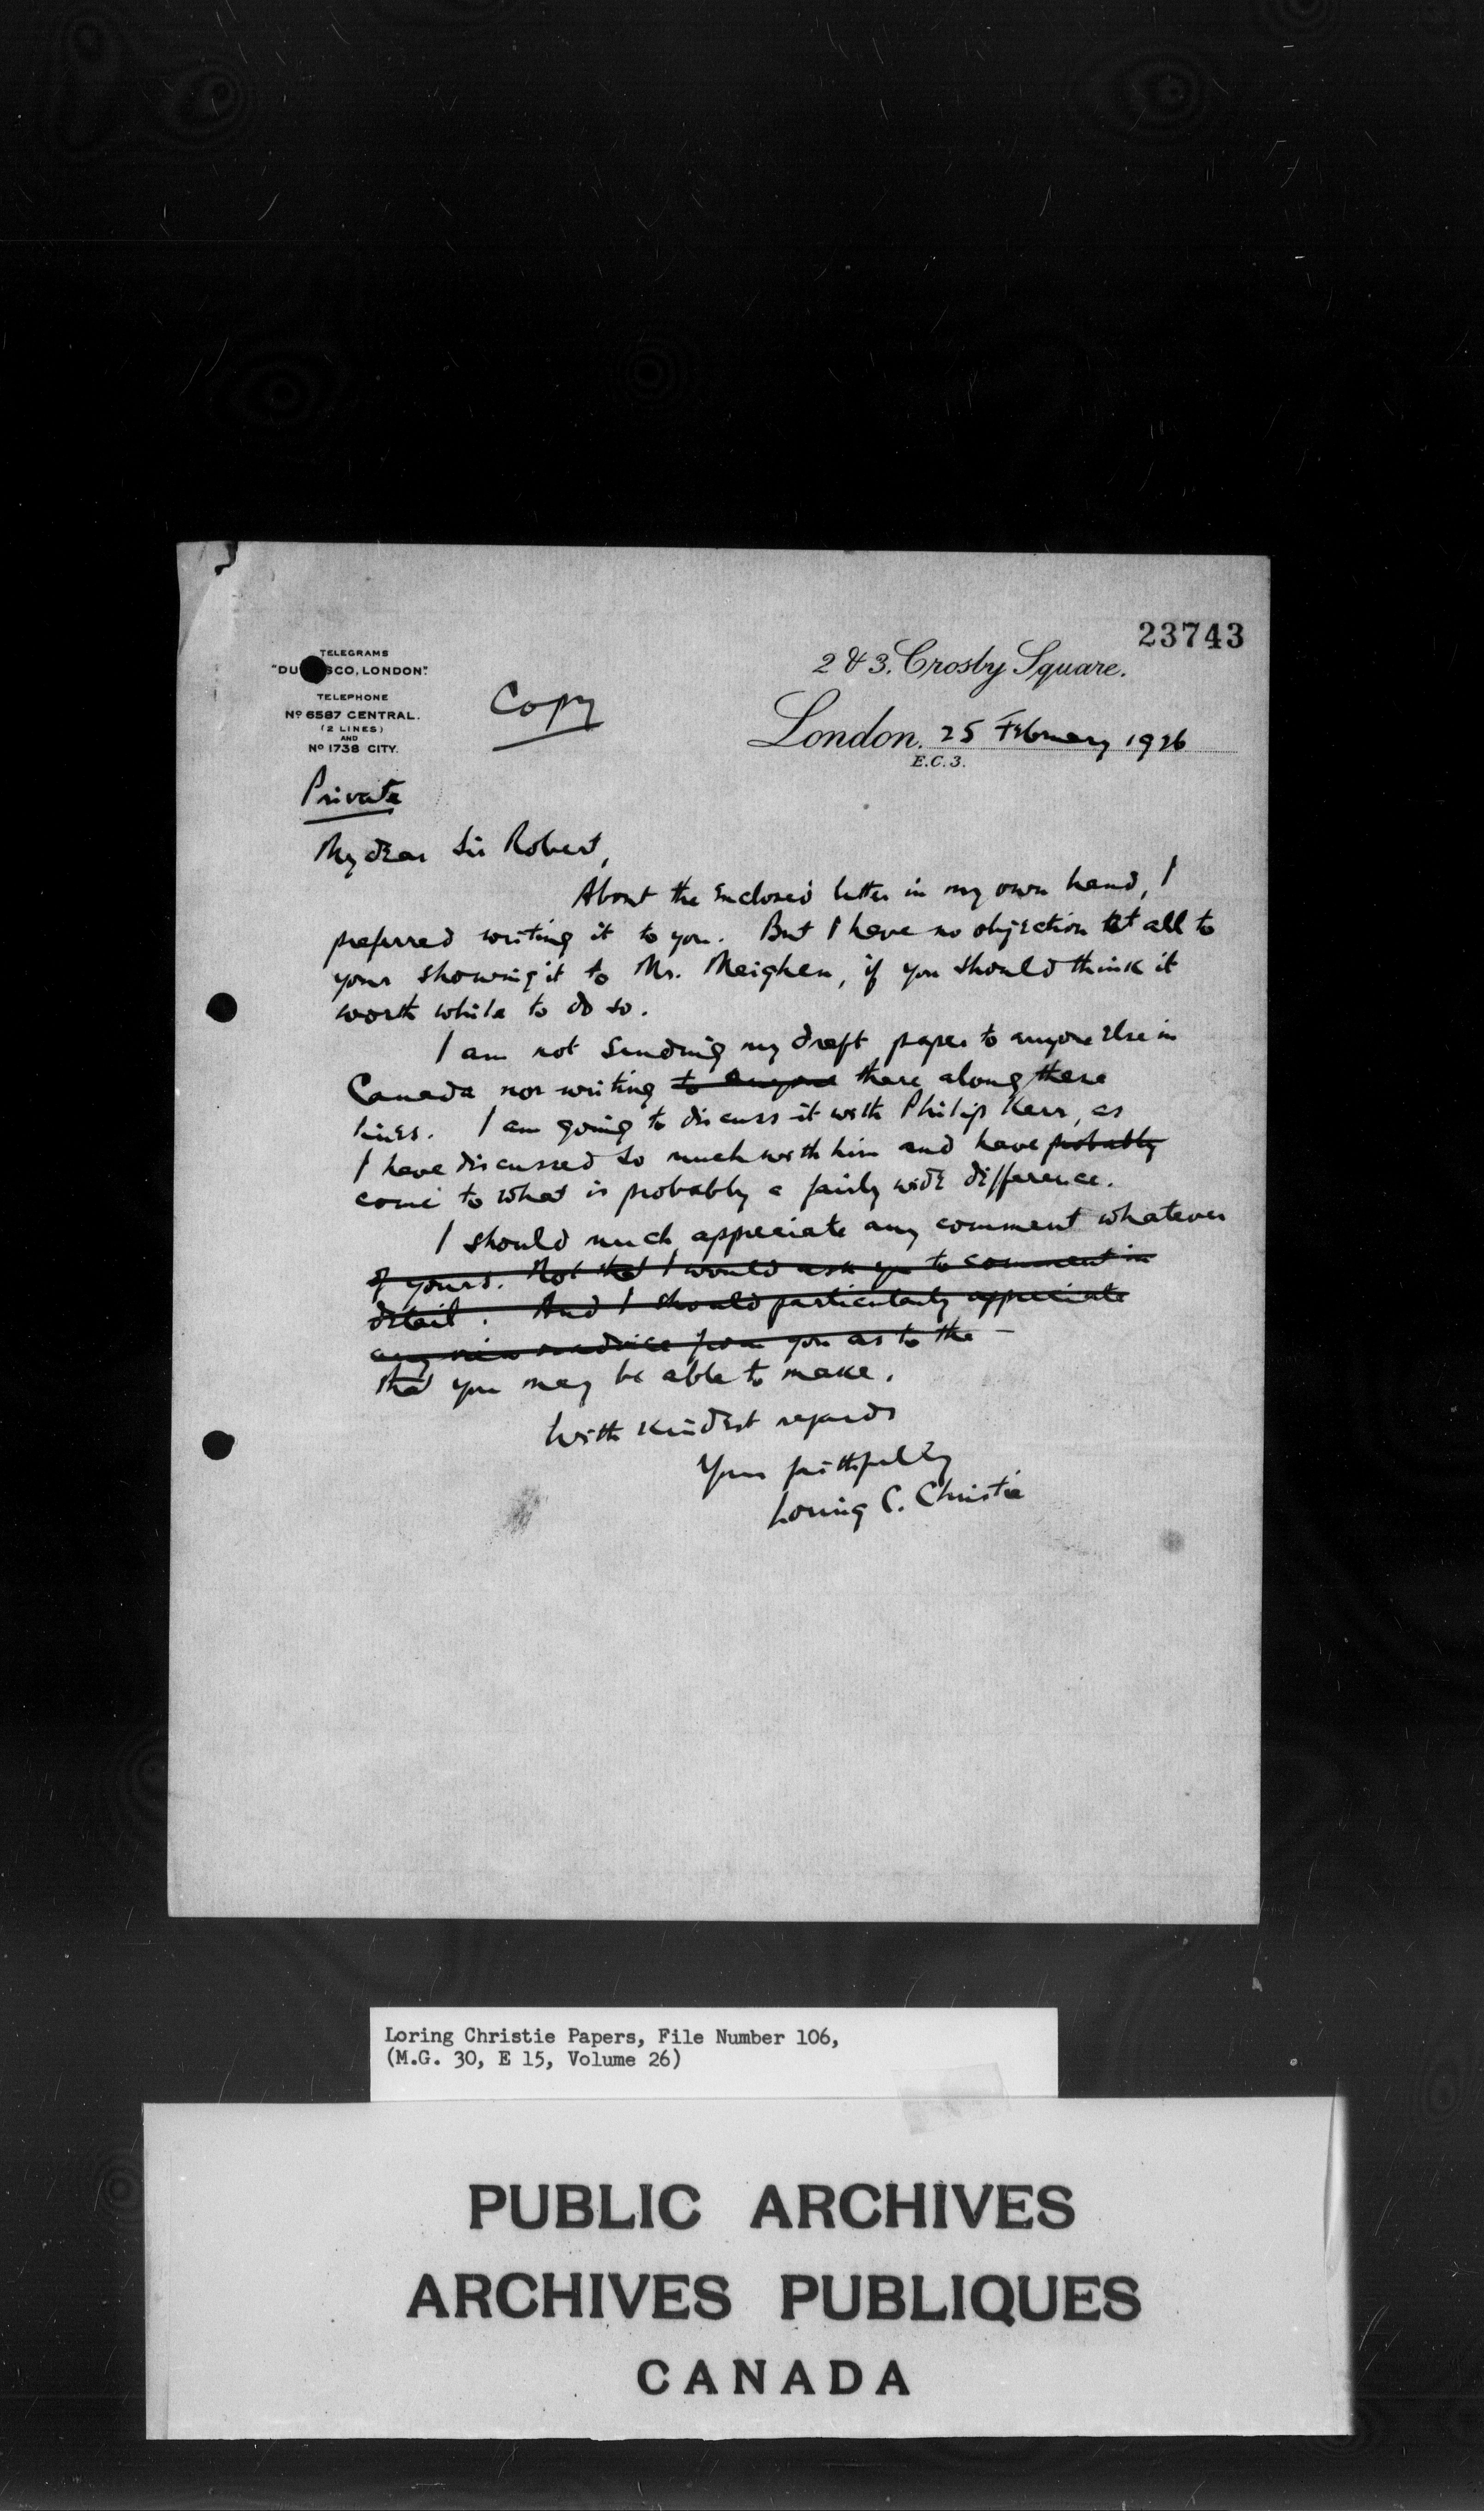 23743
TELEGRAMS
"DU SCO, LONDON".
TELEPHONE
No 6587 CENTRAL.
(2 LINES)
AND
No 1738 CITY.
Copy
2 & 3. Crosby Square.
London. 25 February 1926
E.C.3.
Private
My dear Sir Robert,
About the enclosed letter in my own hand, I
preferred writing it to you. But I have no objection at all to
your showing it to Mr. Meighen, if you should think it
worth while to do so.
I am not sending my draft paper to anyone else in
Canada nor writing to anyone there along these
lines. I am going to discuss it with Philip Kerr, as
I have discussed so much with him and have probably
come to what is probably a fairly wide difference.
I should much appreciate any comment whatever
of yours. Not that I would ask you to comment in
detail. And I should particularly appreciate
any view or advice from you as to the —
that you may be able to make.
With kindest regards
Yours faithfully
Loring C. Christie
Loring Christie Papers, File Number 106,
(M.G. 30, E 15, Volume 26)
PUBLIC ARCHIVES
ARCHIVES PUBLIQUES
CANADA